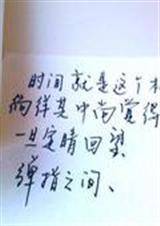 时间就是这个样
徜徉其中尚觉得
一旦定晴回望、
弹指之间、